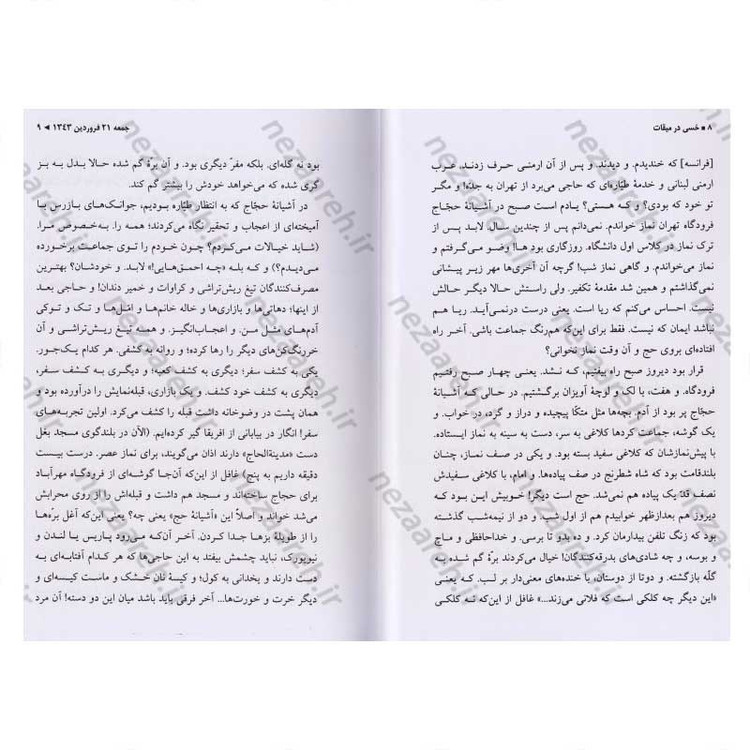 ۸ ■ خسی در میقات
[فرانسه] که خندیدم. و دیدند. و پس از آن ارمنی حرف زدند. عرب
ارمنی لبنانی و خدمهٔ طیّاره‌ای که حاجی می‌برد از تهران به جدّه! و مگر
تو خود که بودی؟ و که هستی؟ یادم است صبح در آشیانهٔ حجّاج
فرودگاه تهران نماز خواندم. نمی‌دانم پس از چندین سال. لابد پس از
ترک نماز در کلاس اول دانشگاه. روزگاری بود ها! وضو می‌گرفتم و
نماز می‌خواندم. و گاهی نماز شب! گرچه آن آخری‌ها مهر زیر پیشانی
نمی‌گذاشتم و همین شد مقدمهٔ تکفیر. ولی راستش حالا دیگر حالش
نیست. احساس می‌کنم که ریا است. یعنی درست درنمی‌آید. ریا هم
نباشد ایمان که نیست. فقط برای این‌که هم‌رنگ جماعت باشی. آخر راه
افتاده‌ای بروی حج و آن وقت نماز نخوانی؟
قرار بود دیروز صبح راه بیفتیم، که نشد. یعنی چهار صبح رفتیم
فرودگاه. و هفت، با لک و لوچهٔ آویزان برگشتیم. در حالی کـه آشیانهٔ
حجّاج پر بود از آدم. بچه‌ها مثل متکّا پیچیده و دراز و گرد، در خواب. و
یک گوشه، جماعت کردها کلاغی به سر، دست به سینه به نماز ایستاده.
با پیش‌نمازشان که کلاغی سفید بسته بود. و یکی در صف نماز، چنان
بلندقامت بود که شاه شطرنج در صف پیاده‌ها. و امام، با کلاغی سفیدش
نصف قدّ یک پیاده هم نمی‌شد. حج است دیگر! خوبیش این بـود کـه
دیروز هم بعدازظهر خوابیدم هم از اول شب. و دو از نیمه‌شب گذشته
بود که زنگ تلفن بیدارمان کرد. و ده بدو تا برسی. و خداحافظی و ماچ
و بوسه، و چه شادی‌های بدرقه‌کنندگان! خیال می‌کردند برّهٔ گم شده به
گلّه بازگشته. و دوتا از دوستان، با خنده‌های معنی‌دار بر لب. کـه یعنی
«این دیگر چه کلکی است که فلانی می‌زند...» غافل از این‌که نه کلکـی
جمعه ۲۱ فروردین ۱۳۴۳ ◄ ۹
بود نه گله‌ای. بلکه مفرّ دیگری بود. و آن برّهٔ گم شده حالا بدل به بـز
گری شده که می‌خواهد خودش را بیشتر گم کند.
در آشیانهٔ حجّاج که به انتظار طیّاره بودیم، جوانک‌های بازرس بـا
آمیخته‌ای از اعجاب و تحقیر نگاه می‌کردند؛ همه را. بـه‌خصـوص مرا.
(شـاید خیـالات مـی‌کـردم؟ چـون خـودم را تـوی جمـاعت برخورده
مـی‌دیـدم؟) و کـه بلـه «چـه احمـق‌هـایی!» لابـد. و خودشـان؟ بهترین
مصرف‌کنندگان تیغ ریش‌تراشی و کراوات و خمیر دندان! و حاجی بعد
از اینها؛ دهاتی‌ها و بازاری‌ها و خاله خانم‌ها و امّل‌هـا و تـک و تـوکی
آدم‌های مثل مـن. و اعجـاب‌انگیـز. و همـه تیـغ ریش‌تراشی و آن
خررنگ‌کن‌های دیگر را رها کرده؛ و روانه به کشفی. هر کدام یک‌جـور.
یکی به کشف سفر؛ دیگری به کشف کعبه؛ و دیگری بـه کشـف سـفر،
دیگری به کشف خود کشف. و یک بازاری، قبله‌نمایش را درآورده بود و
همان پشت در وضوخانه داشت قبله را کشف می‌کرد. اولین تجربه‌های
سفر! انگار در بیابانی از افریقا گیر کرده‌ایم. (الآن در بلندگوی مسجد بغل
دست «مدینةالحاج» دارند اذان می‌گویند، برای نماز عصر. درست بیست
دقیقه داریم به پنج) غافل از این‌که آن‌جا گوشه‌ای از فرودگاه مهرآباد
برای حجاج ساخته‌اند و مسجد هم داشت و قبله‌اش را از روی محرابش
می‌شد خواند و اصلاً این «آشیانهٔ حج» یعنی چه؟ یعنی این‌که آغل برّه‌ها
را از طویلهٔ بزها جدا کردن. آخر آن‌کـه مـی‌رود پـاریس یـا لنـدن و
نیویورک، نباید چشمش بیفتد به این حاجی‌ها که هر کـدام آفتابـه‌ای به
دست دارند و یخدانی به کول؛ و کیسهٔ نان خشک و ماست کیسه‌ای و
دیگر خرت و خورت‌ها... آخر فرقی باید باشد میان این دو دسته! آن مرد
nezaarreh.ir
nezaarreh.ir
nezaarreh.ir
nezaarreh.ir